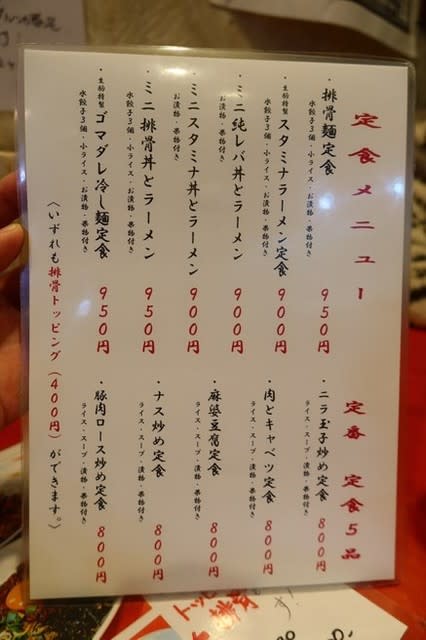 定食メニュー
・排骨麺定食 950円
水餃子3個・小ライス・お漬物・果物付き
・生駒特製 スタミナラーメン定食 900円
水餃子3個・小ライス・お漬物・果物付き
・ミニ純レバ丼とラーメン 900円
お漬物・果物付き
・ミニスタミナ丼とラーメン 900円
お漬物・果物付き
・ミニ排骨丼とラーメン 950円
水餃子3個・お漬物・果物付き
・生駒特製 ゴマダレ冷し麺定食 950円
水餃子3個・小ライス・お漬物・果物付き
定番 定食5品
・ニラ玉子炒め定食 800円
ライス・スープ・漬物・果物付き
・肉とキャベツ定食 800円
ライス・スープ・漬物・果物付き
・麻婆豆腐定食 800円
ライス・スープ・漬物・果物付き
・ナス炒め定食 800円
ライス・スープ・漬物・果物付き
・豚肉ロース炒め定食 800円
ライス・スープ・漬物・果物付き
(いずれも排骨トッピング(400円)ができます。)